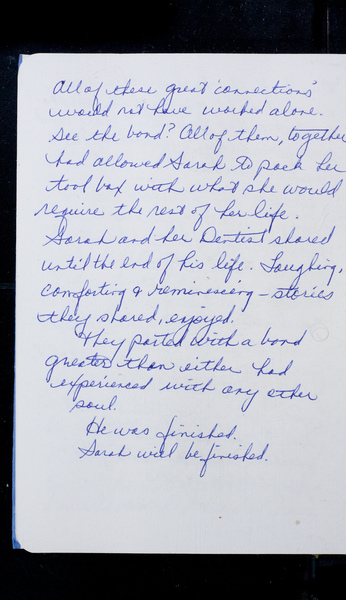 All of these great 'connections'
would not have worked alone.
See the bond? All of them, together
had allowed Sarah to pack her
tool box with what she would
require the rest of her life.
Sarah and her Dentist shared
until the end of his life. Laughing,
comforting & reminescing - stories
they shared, enjoyed.
They parted with a bond
greater than either had
experienced with any other
soul.
He was finished.
Sarah will be finished.